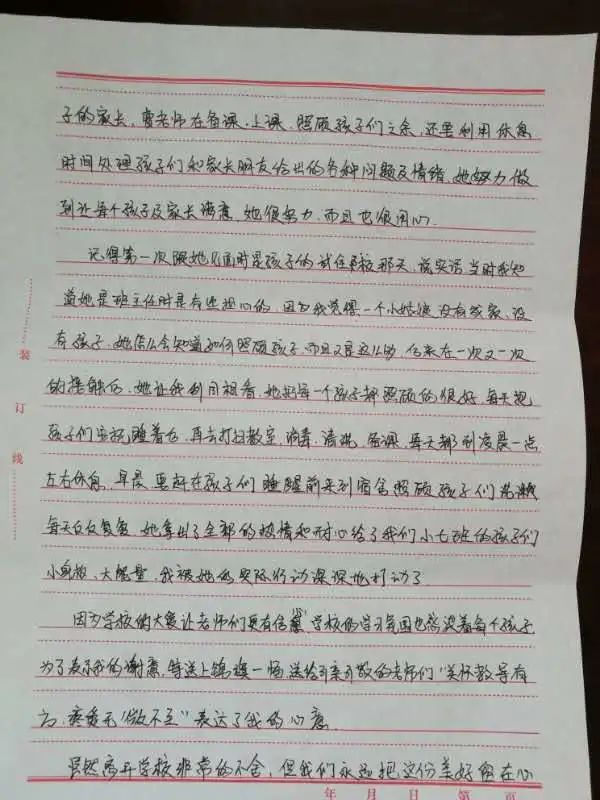 子的家长，曹老师在备课、上课、照顾孩子们之余，还要利用休息
时间处理孩子们和家长朋友给出的各种问题及情绪，她努力做
到让每个孩子及家长满意，她很努力，而且也很用心。
记得第一次跟她见面时是孩子的试住那天，说实话当时我知
道她是班主任时是有些担心的，因为我觉得一个小姑娘没有成家、没
有孩子，她怎么会知道如何照顾孩子，而且又是这么幼，后来在一次又一次
的接触后，她让我刮目相看，她把每一个孩子都照顾的很好，每天把
孩子们安抚睡着后，再去打扫教室，消毒、清洗、备课，每天都到凌晨一点
左右休息，早晨要赶在孩子们睡醒前来到宿舍照顾孩子们洗漱
每天反反复复，她拿出了全部的热情和耐心给了我们小七班的孩子们
小身板、大能量，我被她的实际行动深深地打动了
因为学校的大爱让老师们更有信心，学校的学习氛围也感染着每个孩子
为了表示我的谢意，特送上锦旗一幅，送给可亲可敬的老师们“关怀教导有
方，疼爱无微不至”表达了我的心意
虽然离开学校非常的不舍，但我们永远把这份美好留在心
装
订
线
年 月 日 第 页